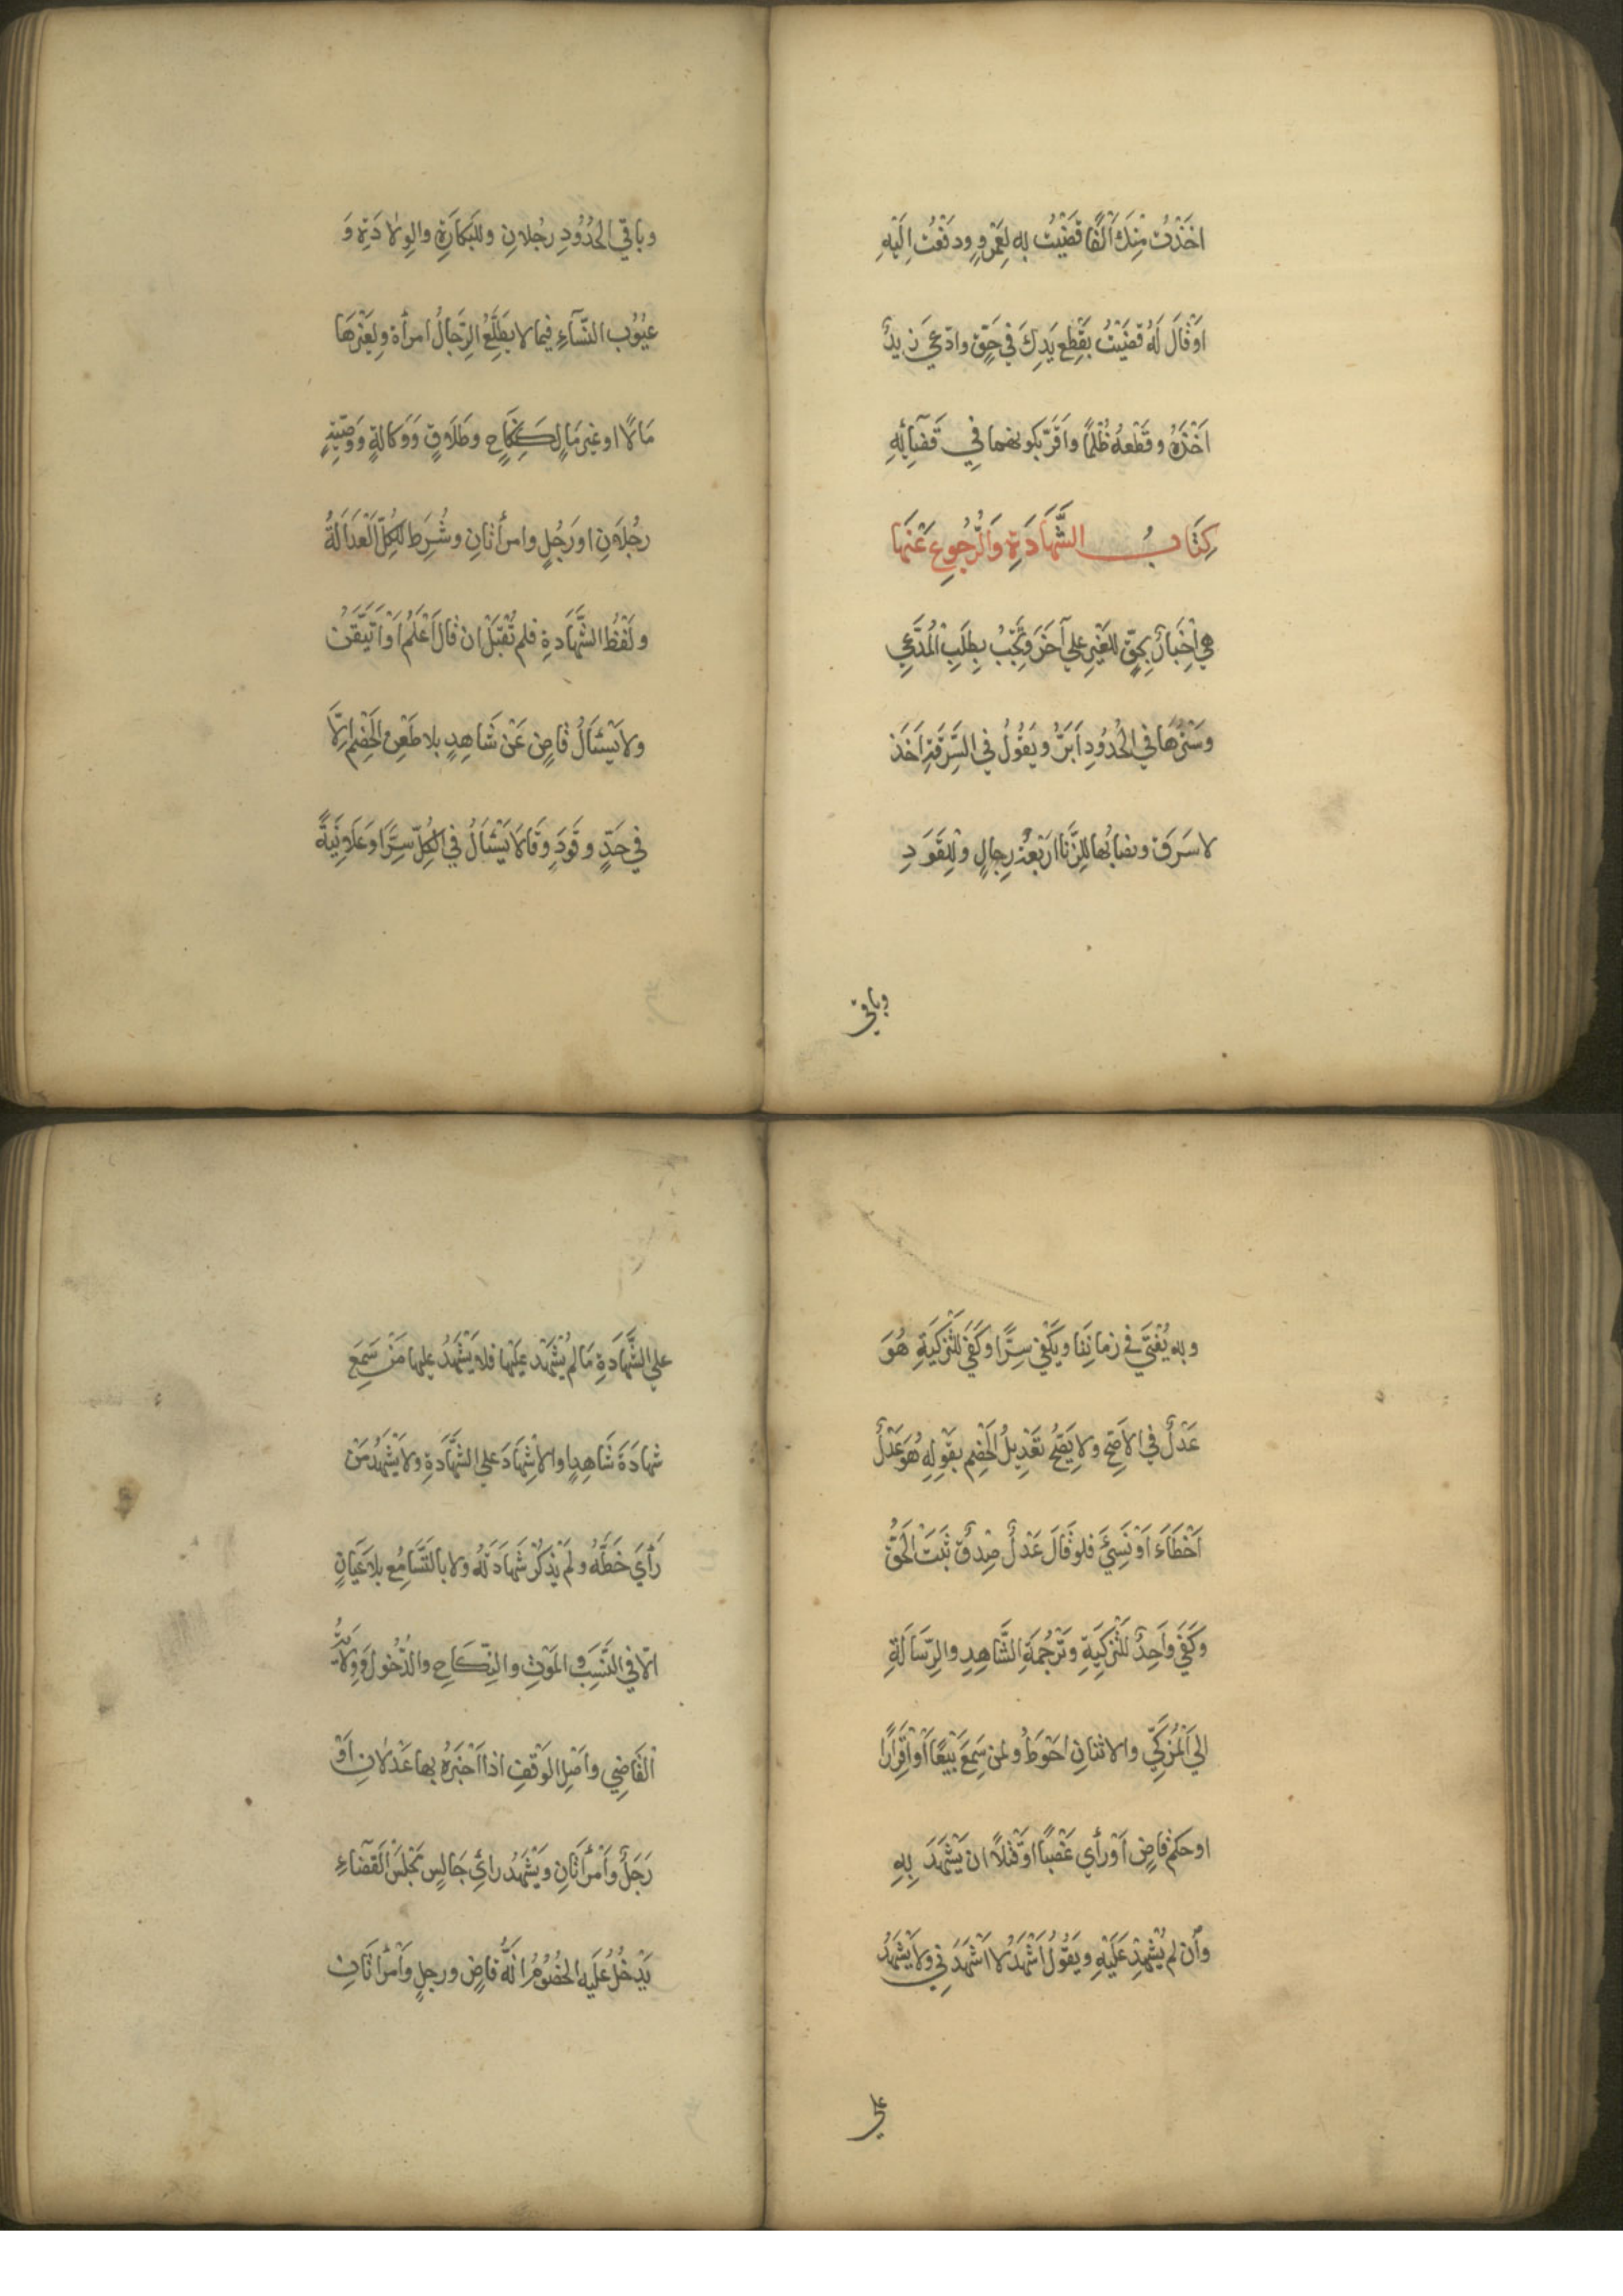 اَخَذْتُ مِنْكَ اَلْفًا قَضَيْتُ به لِعَمْرٍو ودَفَعْتُ اِلَيْهِ
اَوْ قَالَ لَهُ قَضَيْتُ بِقَطْعِ يَدِكَ فِي حَقٍّ وادّعي زيدٌ
اَخْذَهُ وقَطْعَهُ ظُلْمًا واَقَرَّ بكونهما فِي قَضَآئِهِ
كِتَابُ الشَّهَادَةِ وَالرُّجُوعِ عَنْهَا
هِيَ اِخْبَارٌ بِحَقٍّ لِلْغَيْرِ علي آخَرَ وتَجِبُ بِطَلَبِ الْمُدَّعِي
وسَتْرُهَا فِي الْحُدُودِ اَبَرُّ ويَقُولُ فِي السَّرِقَةِ اَخَذَ
لا سَرَقَ ونصابُها لِلزِّنَا اَرْبَعَةُ رِجالٍ ولِلْقَوَدِ
وباقي
وباقي الْحُدُودِ رجُلانِ ولِلْبَكَارَةِ والوِلادَةِ وَ
عيُوُبِ النّسَآءِ فيما لا يطَّلِعُ الرِّجَالُ امرأة ولِغَيْرِهَا
مَالًا اوغير مَالٍ كَنِكَاحٍ وطَلَاقٍ وَوَكالةٍ وَوَصِيَّةٍ
رجُلَانِ اورَجُلٍ وامرأتانِ وشُرِط لِلْكُلِّ الْعَدَالَةُ
ولَفْظُ الشَّهَادةِ فلم تُقْبَلْ ان قَالَ اَعْلَمُ اَوْ اَتَيَقَّنُ
ولا يَسْئَالُ قاضٍ عَنْ شَاهِدٍ بلا طَعْنِ الْخَصْمِ اِلَّا
في حَدٍّ وقَوَدٍ وقَالا يَسْئَالُ فِي الكُلِّ سِرًّا وَعَلَانِيَةً
وبه يُفْتَي في زمانِنَا ويَكْفِي سِرًّا وكَفَي لِلتَّزْكِيَةِ هُوَ
عَدْلٌ في الاَصَحِّ ولا يَصِحُّ تَعْدِيلُ الْخَصْمِ بقَوْلِهِ هُوَ عَدْلٌ
اَخْطَاءَ اَوْ نَسِيَ فلو قَالَ عَدْلٌ صِدْقٌ ثَبَتَ الْحَقُّ
وكَفَي واَحِدٌ لِلتَّزْكِيَةِ وتَرْجُمَةِ الشَّاهِدِ والرِّسَالَةِ
الي اَلْمُزَكِّي والاثنانِ احْوَطُ ولمن سَمِعَ بَيْعًا اَوْ اِقْرَارًا
اوحكم قاضٍ اَوْ رَأي غَصْبًا اوقَتْلًا ان يَشْهَدَ بِهِ
وأن لم يُشْهِدْ عَلَيْهِ ويَقُولُ اَشْهَدُ لا اَشْهَدَنِي ولا يَشْهَدُ
علي
علي الشَّهَادَةِ مَا لم يُشْهَدْ عَلَيْها فلا يَشْهَدُ عليها مَنْ سَمِعَ
شهادَةَ شَاهِدٍ والاِشْهَادَ علي الشَّهَادَةِ ولا يَشْهَدُ مَنْ
رَأَيَ خَطَّهُ ولَمْ يَذكُرْ شَهَادَتَهُ ولا بالتَّسَامُعِ بلا عَيَانٍ
الّا في النَّسَبِ والْمَوْتِ والنِّكَاحِ والدُّخُولِ وَوِلَايَةِ
اْلقَاضِي واَصْلِ الوَقْفِ اذا اَخْبَرَهُ بها عَدْلانِ اَوْ
رَجَلٌ وَاَمْرَأتَانِ ويَشْهَدُ رائِي جَالِسٍ مَجْلِسَ الْقَضَاءِ
يَدْخُلُ عَلَيه الخُصُوْمُ انَّهُ قَاضٍ ورجلٍ وَاَمْرَاَتَانِ